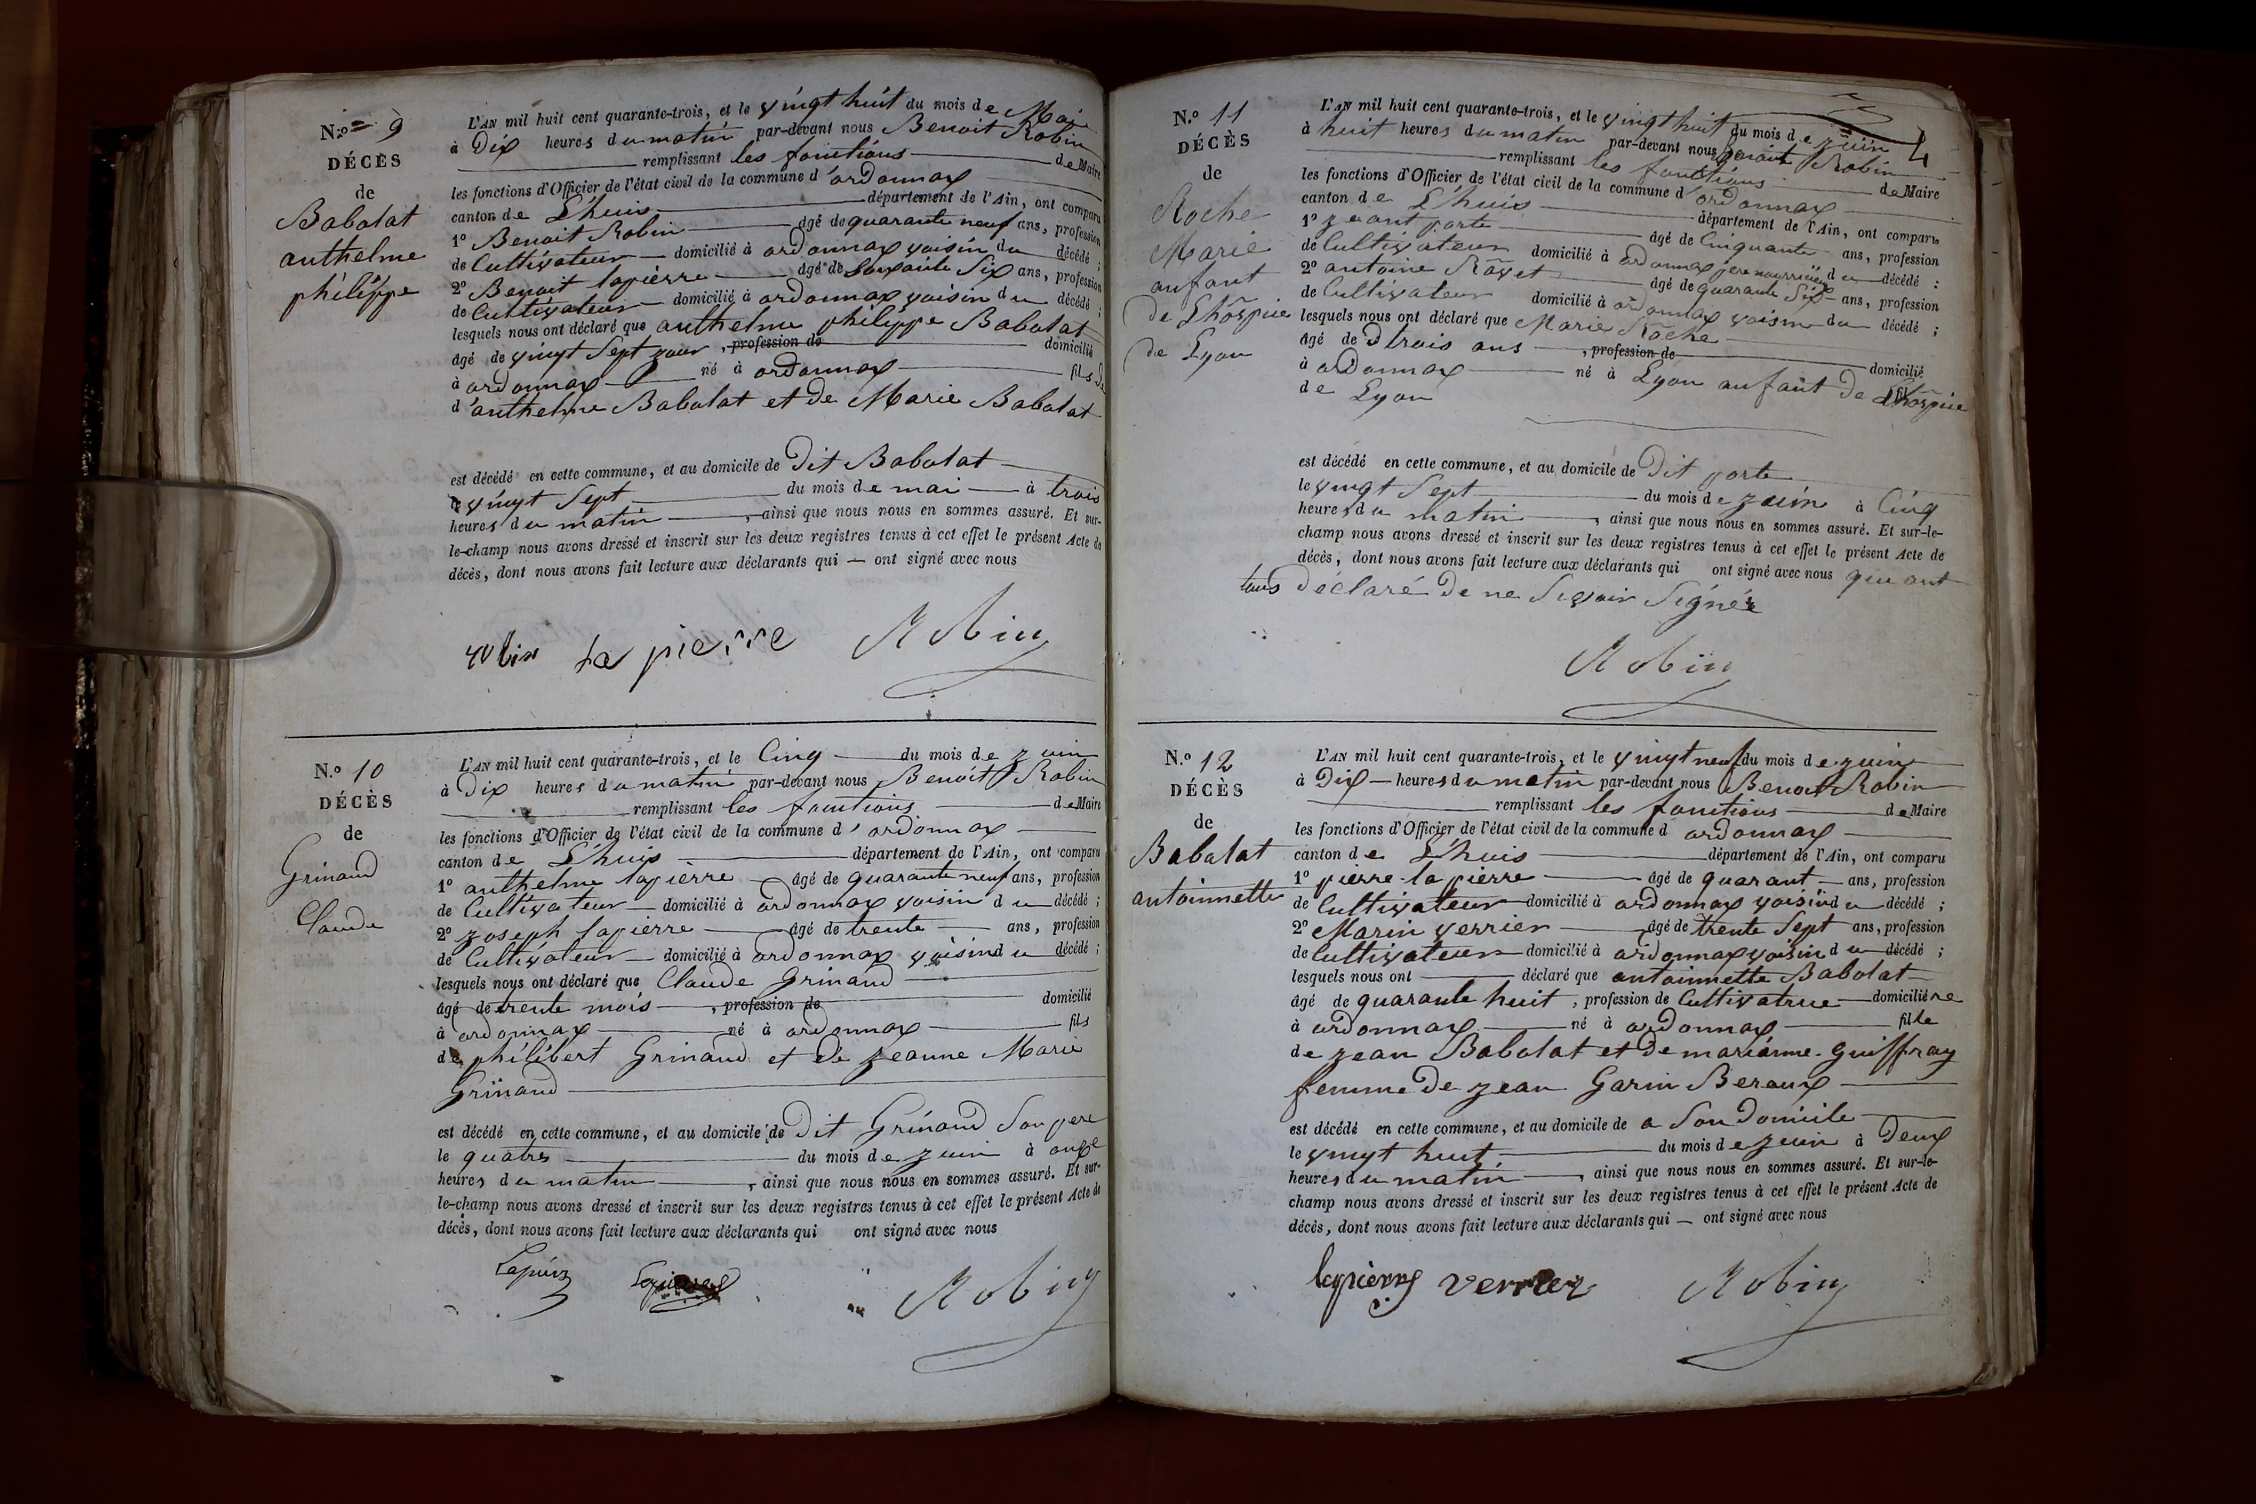 N.º 9
DÉCÈS
de
Babolat
anthelme
philippe
L'AN mil huit cent quarante-trois, et le vingt huit du mois de Mai
à Dix heures du matin par-devant nous Benoit Robin
remplissant les fonctions de Maire
les fonctions d'Officier de l'état civil de la commune d'ordonnax
canton de L'huis département de l'Ain, ont comparu
1º Benoit Robin âgé de quarante neuf ans, profession
de Cultivateur domicilié à ordonnax voisin du décédé ;
2º Benoit lapierre âgé de Soixante Six ans, profession
de Cultivateur domicilié à ordonnax voisin du décédé ;
lesquels nous ont déclaré que anthelme philippe Babolat
âgé de vingt Sept jour , profession de domicilié
à ordonnax né à ordonnax fils de
d'anthelme Babolat et de Marie Babolat
est décédé en cette commune, et au domicile de Dit Babolat
le vingt Sept du mois de mai à trois
heures du matin , ainsi que nous nous en sommes assuré. Et sur-
le-champ nous avons dressé et inscrit sur les deux registres tenus à cet effet le présent Acte de
décès, dont nous avons fait lecture aux déclarants qui — ont signé avec nous
robin la pierre Robin
N.º 10
DÉCÈS
de
Grinand
Claude
L'AN mil huit cent quarante-trois, et le Cinq du mois de juin
à Dix heures du matin par-devant nous Benoit Robin
remplissant les fonctions de Maire
les fonctions d'Officier de l'état civil de la commune d'ordonnax
canton de L'huis département de l'Ain, ont comparu
1º anthelme lapierre âgé de quarante neuf ans, profession
de Cultivateur domicilié à ordonnax voisin du décédé ;
2º joseph lapierre âgé de trente ans, profession
de Cultivateur domicilié à ordonnax voisin du décédé ;
lesquels nous ont déclaré que Claude Grinand
âgé de trente mois , profession de domicilié
à ordonnax né à ordonnax fils
de philibert Grinand et de jeanne Marie
Grinand
est décédé en cette commune, et au domicile de Dit Grinand Son pere
le quatre du mois de juin à onze
heures du matin , ainsi que nous nous en sommes assuré. Et sur-
le-champ nous avons dressé et inscrit sur les deux registres tenus à cet effet le présent Acte de
décès, dont nous avons fait lecture aux déclarants qui ont signé avec nous
Robin
N.º 11
DÉCÈS
de
Roche
Marie
anfant
de Lhospice
de Lyon
L'AN mil huit cent quarante-trois, et le vingt huit du mois de juin
à huit heures du matin par-devant nous Benoit Robin
remplissant les fonctions de Maire
les fonctions d'Officier de l'état civil de la commune d'ordonnax
canton de L'huis département de l'Ain, ont comparu
1º jeant porte âgé de Cinquante ans, profession
de Cultivateur domicilié à ordonnax pere nourricier du décédé ;
2º antoine Rayet âgé de quarante Six ans, profession
de Cultivateur domicilié à ordonnax voisin du décédé ;
lesquels nous ont déclaré que Marie Roche
âgé de trois ans , profession de domicilié
à ordonnax né à Lyon anfant de Lhospice
de Lyon
est décédé en cette commune, et au domicile de Dit porte
le vingt Sept du mois de juin à Cinq
heures du matin , ainsi que nous nous en sommes assuré. Et sur-le-
champ nous avons dressé et inscrit sur les deux registres tenus à cet effet le présent Acte de
décès, dont nous avons fait lecture aux déclarants qui ont signé avec nous qui ont
tous déclaré de ne Sçavoir Signée
Robin
N.º 12
DÉCÈS
de
Babolat
antoinnette
L'AN mil huit cent quarante-trois, et le vingt neuf du mois de juin
à Dix — heures du matin par-devant nous Benoit Robin
remplissant les fonctions de Maire
les fonctions d'Officier de l'état civil de la commune d ordonnax
canton de L'huis département de l'Ain, ont comparu
1º pierre lapierre âgé de quarant ans, profession
de Cultivateur domicilié à ordonnax voisin du décédé ;
2º Marin verrier âgé de trente Sept ans, profession
de Cultivateur domicilié à ordonnax voisin du décédé ;
lesquels nous ont déclaré que antoinnette Babolat
âgé de quarante huit , profession de Cultivatrice domiciliére
à ordonnax né à ordonnax fille
de jean Babolat et de marianne guiffray
femme de jean Garin Beraux
est décédé en cette commune, et au domicile de a Son Domicile
le vingt huit du mois de juin à Deux
heures du matin , ainsi que nous nous en sommes assuré. Et sur-le-
champ nous avons dressé et inscrit sur les deux registres tenus à cet effet le présent Acte de
décès, dont nous avons fait lecture aux déclarants qui — ont signé avec nous
lapierre verrier Robin